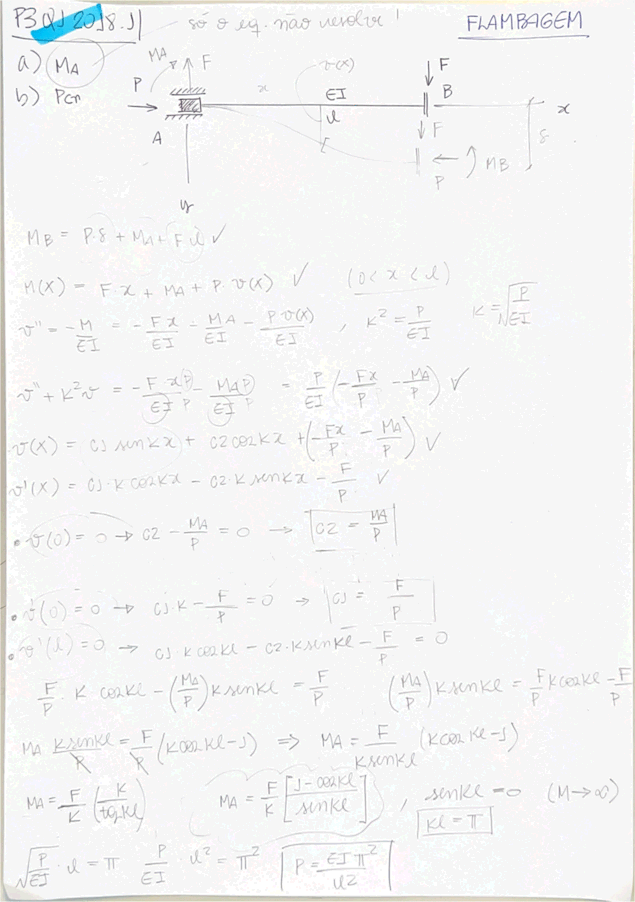 P3 QJ 2018.1 só o eq. não resolve! FLAMBAGEM
a) MA
b) Pcr
MA F v(x) F
P x EI B x
A l F δ
P MB
y
MB = P.δ + MA + F.l ✓
M(X) = F.x + MA + P.v(x) ✓ (0<x<l)
v'' = -M/EI = -Fx/EI - MA/EI - Pv(x)/EI , K² = P/EI K = √(P/EI)
v'' + K²v = -F.xP/EI P - MAP/EI P = P/EI (-Fx/P - MA/P) ✓
v(X) = C1 senKx + C2 cosKx + (-Fx/P - MA/P) ✓
v'(X) = C1.K cosKx - C2.K senKx - F/P ✓
• v(0) = 0 → C2 - MA/P = 0 → C2 = MA/P
• v'(0) = 0 → C1.K - F/P = 0 → C1 = F/P
• v'(l) = 0 → C1.K cosKl - C2.K senKl - F/P = 0
F/P . K cosKl - (MA/P) K senKl = F/P (MA/P) K senKl = F/P K cosKl - F/P
MA K senKl/P = F/P (K cosKl - 1) ⇒ MA = F/K senKl (K cosKl - 1)
MA = F/K (K/tgKl) MA = F/K [1-cosKl/senKl] , senKl = 0 (M→∞)
Kl = π
√(P/EI) . l = π P/EI . l² = π² P = EI π²/l²